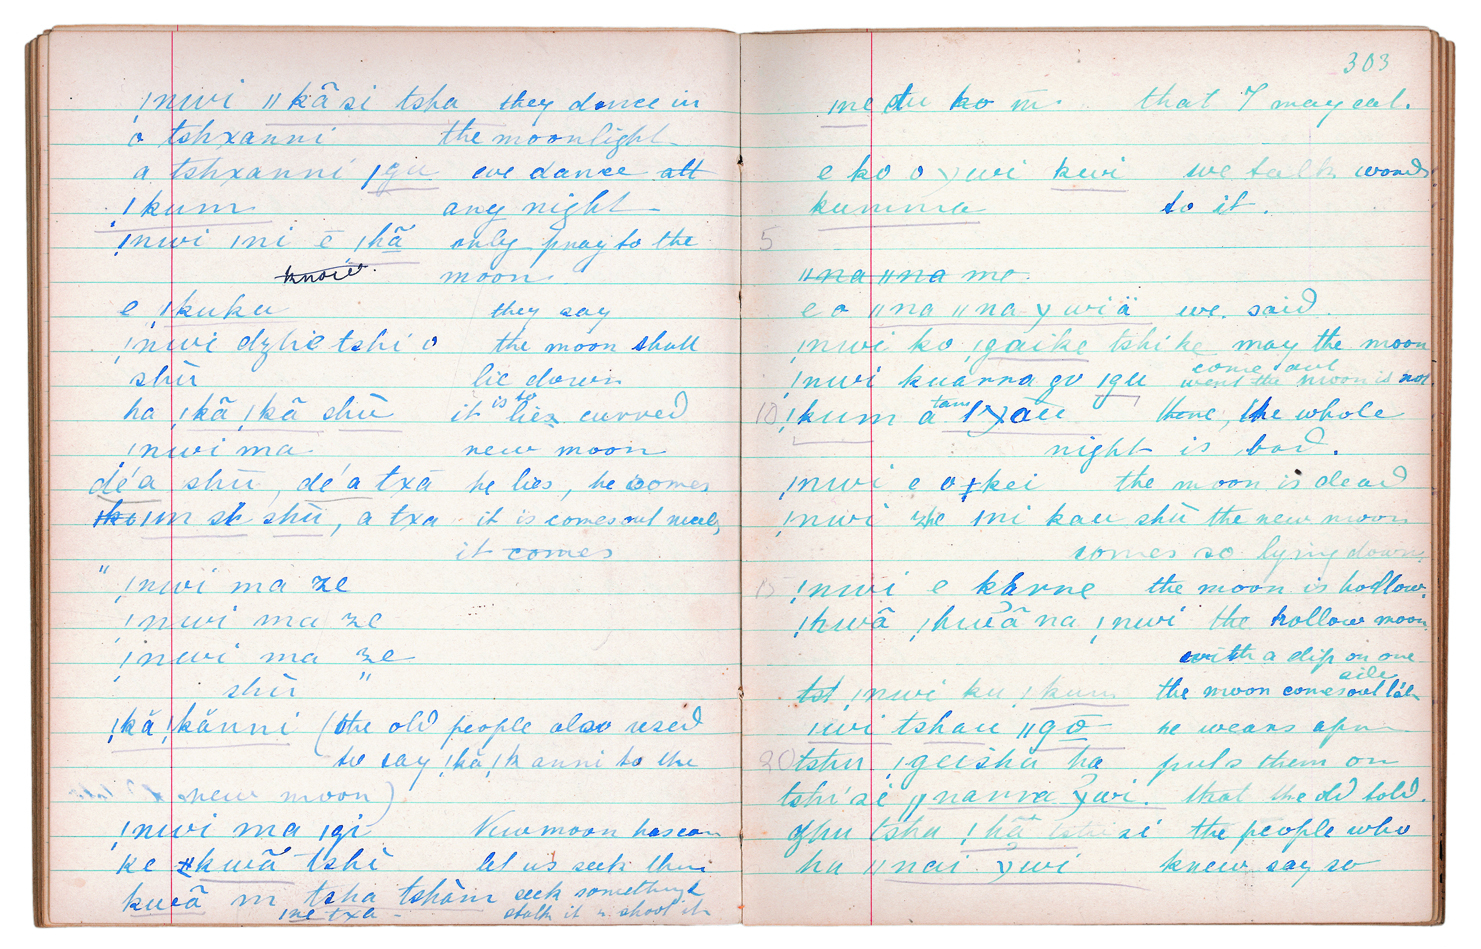 ǃnwi ǁkãsi tsha they dance in
o tshxanni the moonlight
a tshxanni ǀgu we dance att
ǃkum any night
ǃnwi ǀni ē ǀhã only pray to the
know moon
e ǃkuku they say
ǃnwi dzhe tshi o the moon shall
shū lie down
ha ǃkã ǃkã shū it is to lies curved
ǃnwi ma new moon
dé a shū, dé a txā he lies, he comes
ǀm sh shū, a txa it is comes out newly
it comes
" ǃnwi ma ze
ǃnwi ma ze
ǃnwi ma ze
shū "
ǃkã ǃkãnni (the old people also used
to say ǃkã ǃkanni to the
new moon)
ǃnwi ma ǀgi New moon has come
ke ǂkwã tshi let us seek them
kuẽã m tsha tshàm seek something
ǀne txa - stalk it & shoot it
303
ǀne du ko m̄ that I may eat.
e ko o ʘwi kwi we talk words
kumma to it.
5
ǁna ǁna me
e o ǁna ǁna ʘwiä we said
ǃnwi ko ǃgaike tshike may the moon
come out
ǃnwi kuanna gu ǀgu went the moon is not
10 ǃkum a there, the whole
night is bad.
ǃnwi e o ǂkei the moon is dead
ǃnwi zhe ǀni kau shū the new moon
comes so lying down
15 ǃnwi e karne the moon is hollow.
ǃkwã ǃkuẽã na ǃnwi the hollow moon
with a dip on one
side
tst ǃnwi ku ǃkum the moon comes out late
ǀwi tshau ǁgō he wears
20 tshu ǃgeisha ha puts them on
tshi si ǁnanna ʘwi. that the old told.
ghu tsha ǃhã si the people who
ha ǁnai ʘwi knew say so